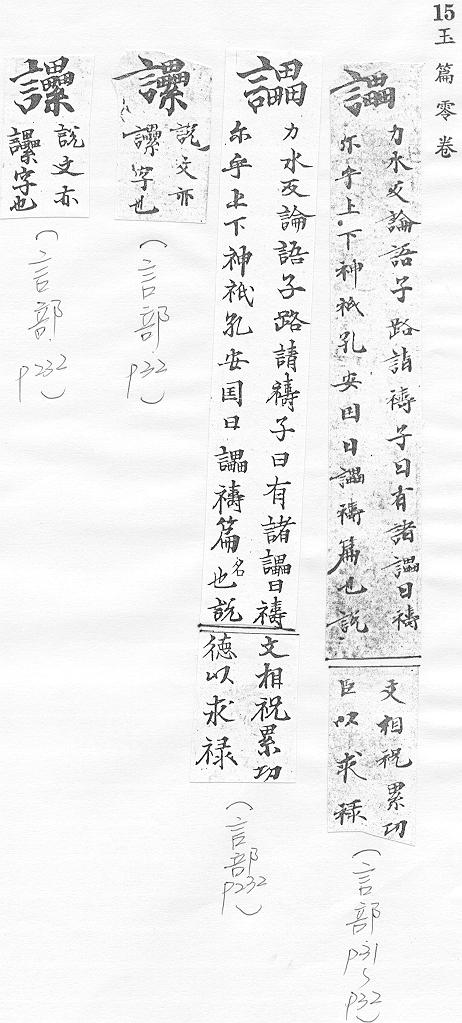 15 玉篇零卷
讄
力水反論語子路請禱子曰有諸讄曰禱
尔乎上下神祇孔安囯曰讄禱篇也說
文相祝累功
臣以求禄
(言部 p31~p32)
讄
力水反論語子路請禱子曰有諸讄曰禱
尓乎上下神祇孔安囯曰讄禱篇名也說
文相祝累功
德以求禄
(言部 p232)
𧮢
說文亦
𧮢字也
(言部 p32)
𧮢
說文亦
𧮢字也
(言部 p232)